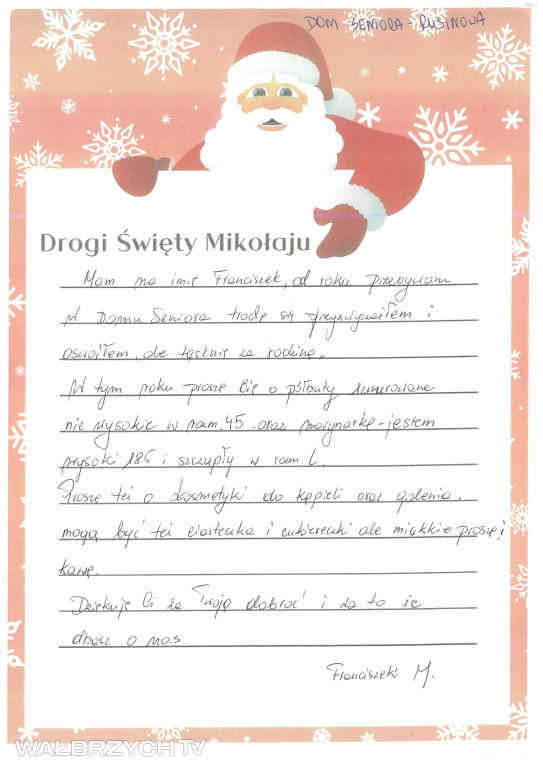 DOM SENIORA - RUSINOWA
Drogi Święty Mikołaju
Mam na imię Franciszek, od roku przebywam
w Domu Seniora trochę się przyzwyczaiłem i
oswoiłem, ale tęsknię za rodziną.
W tym roku proszę Cię o półbuty sznurowane
nie wysokie w rozm. 45. oraz marynarkę - jestem
wysoki 185 i szczupły w rozm. L.
Proszę też o kosmetyki do kąpieli oraz golenia.
mogą być też ciasteczka i cukiereczki ale miękkie proszę i
kawę.
Dziękuję Ci za Twoją dobroć i za to że
dbasz o nas.
Franciszek M.
WAŁBRZYCH TV